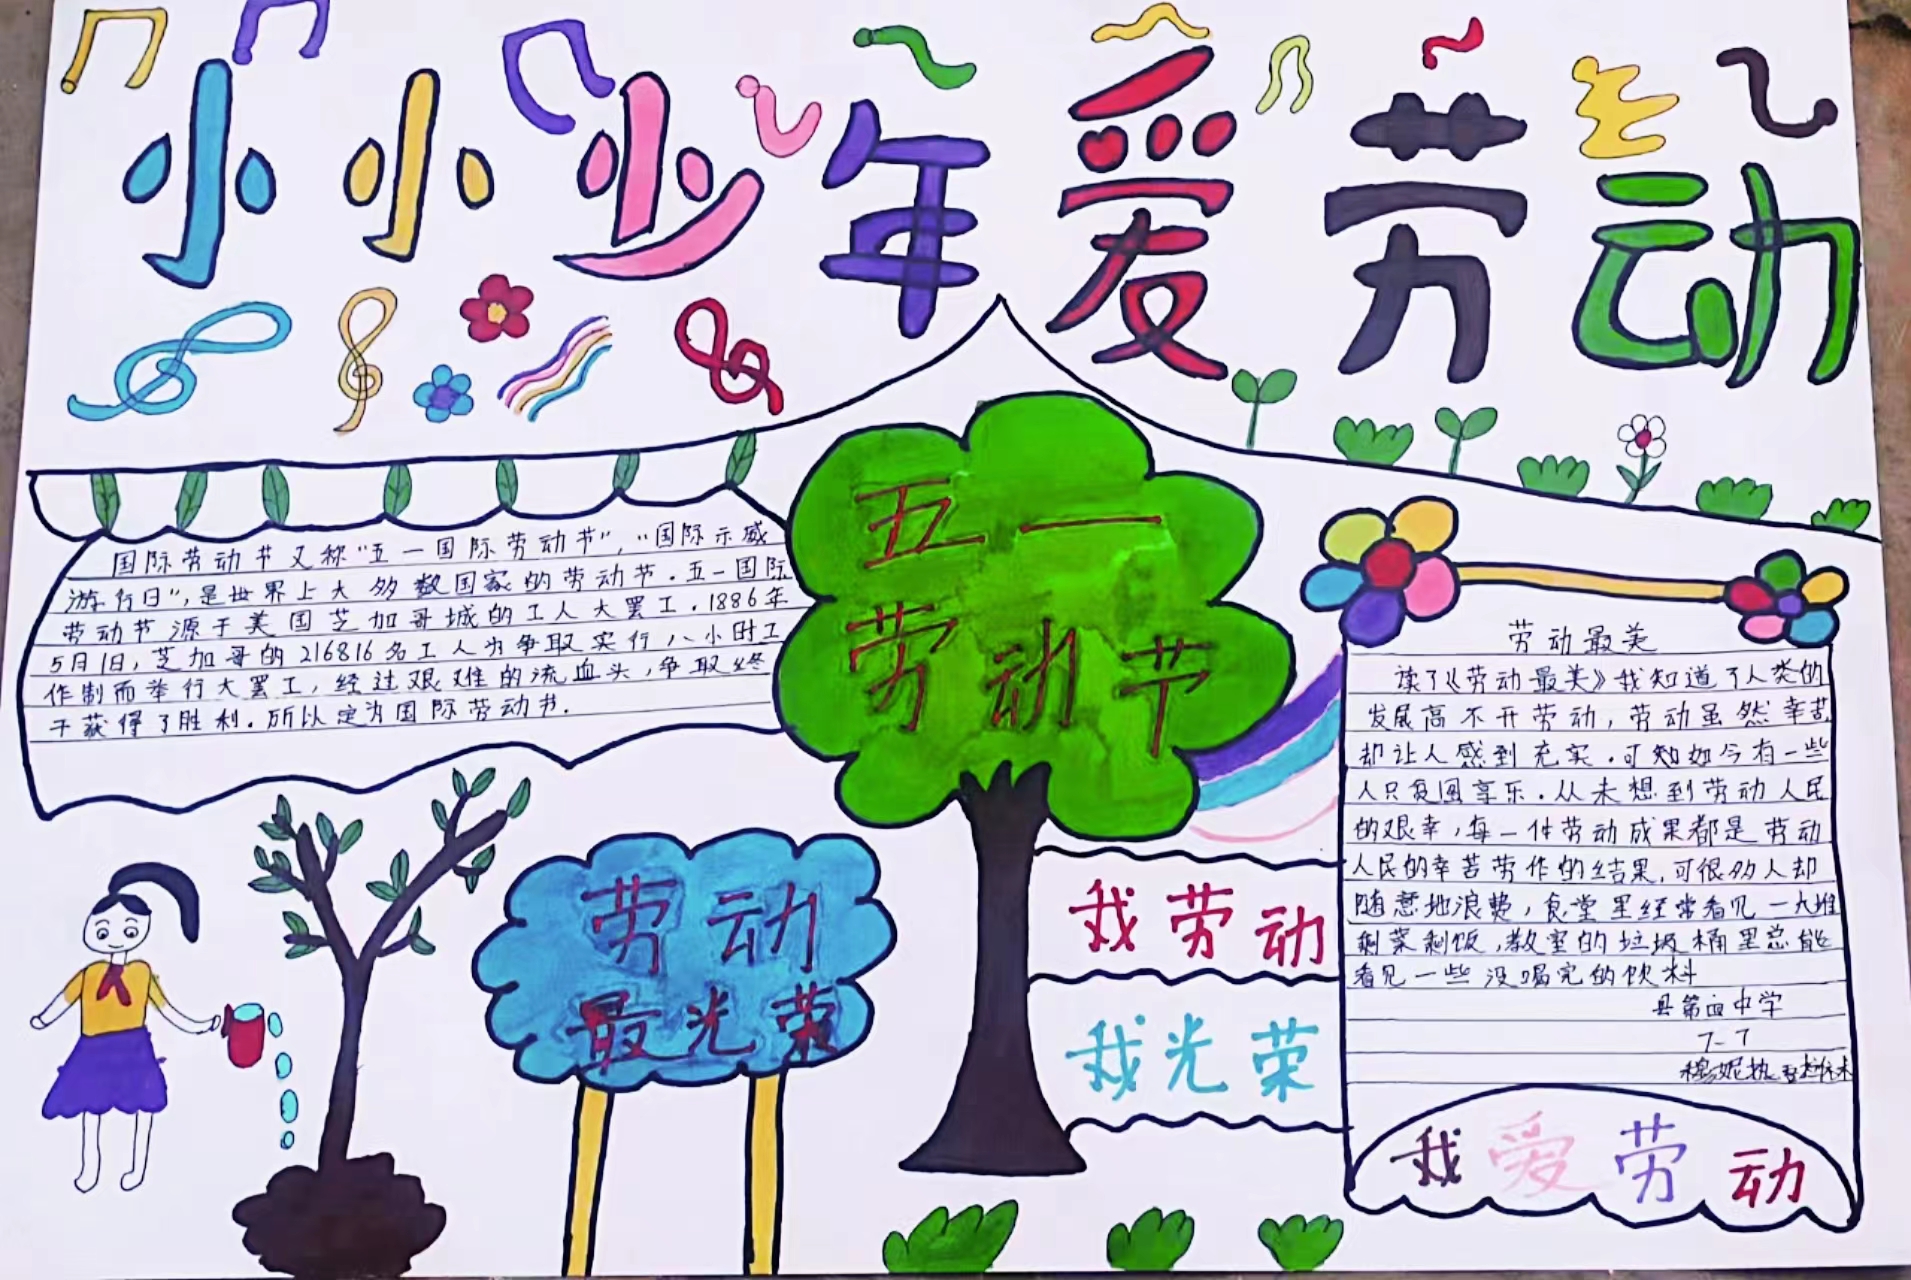 小小少年爱劳动
国际劳动节又称“五一国际劳动节”,“国际示威
游行日”,是世界上大多数国家的劳动节.五一国际
劳动节源于美国芝加哥城的工人大罢工.1886年
5月1日,芝加哥的216816名工人为争取实行八小时工
作制而举行大罢工,经过艰难的流血头,争取终
于获得了胜利.所以定为国际劳动节.
五一
劳动节
劳动
最光荣
我劳动
我光荣
劳动最美
读了《劳动最美》我知道了人类的
发展高不开劳动,劳动虽然幸苦
却让人感到充实.可知如今有一些
人只贪图享乐.从未想到劳动人民
的艰幸,每一件劳动成果都是劳动
人民的幸苦劳作的结果,可很多人却
随意地浪费,食堂里经常看见一大堆
剩菜剩饭,教室的垃圾桶里总能
看见一些没喝完的饮料
县第四中学
7-7
我爱劳动